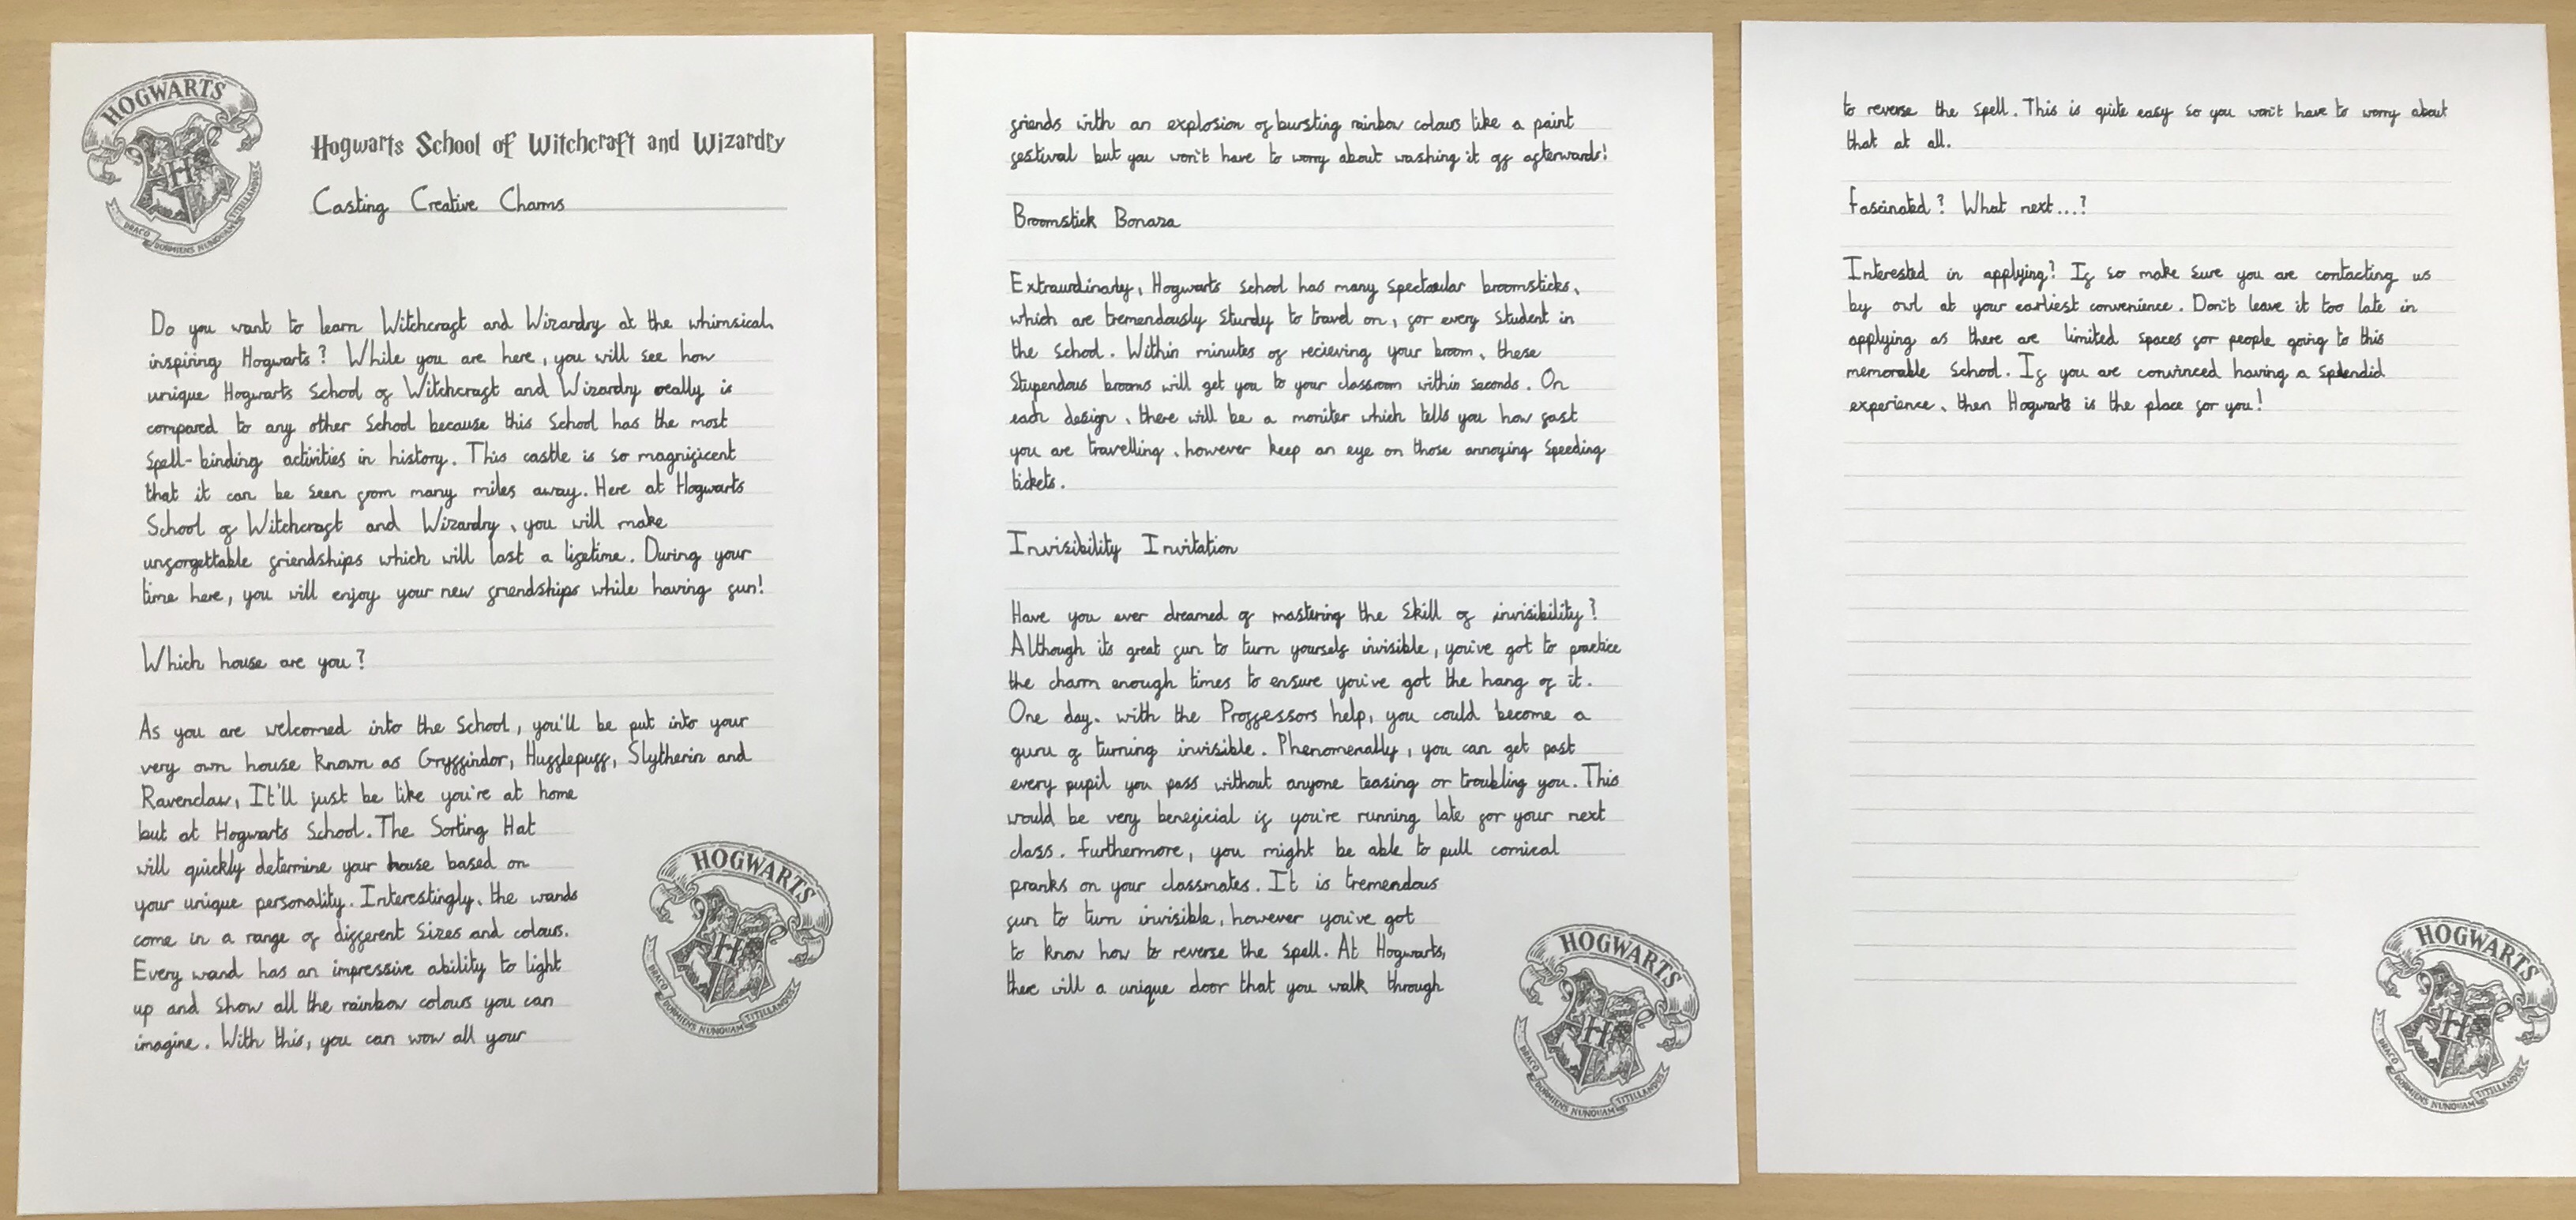 HOGWARTS
DRACO DORMIENS NUNQUAM TITILLANDUS
Hogwarts School of Witchcraft and Wizardry
Casting Creative Charms
Do you want to learn Witchcraft and Wizardry at the whimsical,
inspiring Hogwarts? While you are here, you will see how
unique Hogwarts School of Witchcraft and Wizardry really is
compared to any other School because this School has the most
Spell-binding activities in history. This castle is so magnificent
that it can be seen from many miles away. Here at Hogwarts
School of Witchcraft and Wizardry, you will make
unforgettable friendships which will last a lifetime. During your
time here, you will enjoy your new friendships while having fun!
Which house are you?
As you are welcomed into the School, you'll be put into your
very own house known as Gryffindor, Hufflepuff, Slytherin and
Ravenclaw, It'll just be like you're at home
but at Hogwarts School. The Sorting Hat
will quickly determine your house based on
your unique personality. Interestingly, the wands
come in a range of different sizes and colours.
Every wand has an impressive ability to light
up and show all the rainbow colours you can
imagine. With this, you can wow all your
HOGWARTS
DRACO DORMIENS NUNQUAM TITILLANDUS
friends with an explosion of bursting rainbow colours like a paint
festival but you won't have to worry about washing it off afterwards!
Broomstick Bonaza
Extraurdinarly, Hogwarts School has many spectacular broomsticks,
which are tremendously sturdy to travel on, for every student in
the School. Within minutes of recieving your broom, these
stupendous brooms will get you to your classroom within seconds. On
each design, there will be a moniter which tells you how fast
you are travelling, however keep an eye on those annoying speeding
tickets.
Invisibility Invitation
Have you ever dreamed of mastering the skill of invisibility?
Although its great fun to turn yourself invisible, you've got to practice
the charm enough times to ensure you've got the hang of it.
One day, with the Proffessors help, you could become a
guru of turning invisible. Phenomenally, you can get past
every pupil you pass without anyone teasing or troubling you. This
would be very beneficial if you're running late for your next
class. Furthermore, you might be able to pull comical
pranks on your classmates. It is tremendous
fun to turn invisible, however you've got
to know how to reverse the spell. At Hogwarts,
there will a unique door that you walk through
HOGWARTS
DRACO DORMIENS NUNQUAM TITILLANDUS
to reverse the spell. This is quite easy so you won't have to worry about
that at all.
Fascinated? What next...?
Interested in applying? If so make sure you are contacting us
by owl at your earliest convenience. Don't leave it too late in
applying as there are limited spaces for people going to this
memorable School. If you are convinced having a splendid
experience, then Hogwarts is the place for you!
HOGWARTS
DRACO DORMIENS NUNQUAM TITILLANDUS